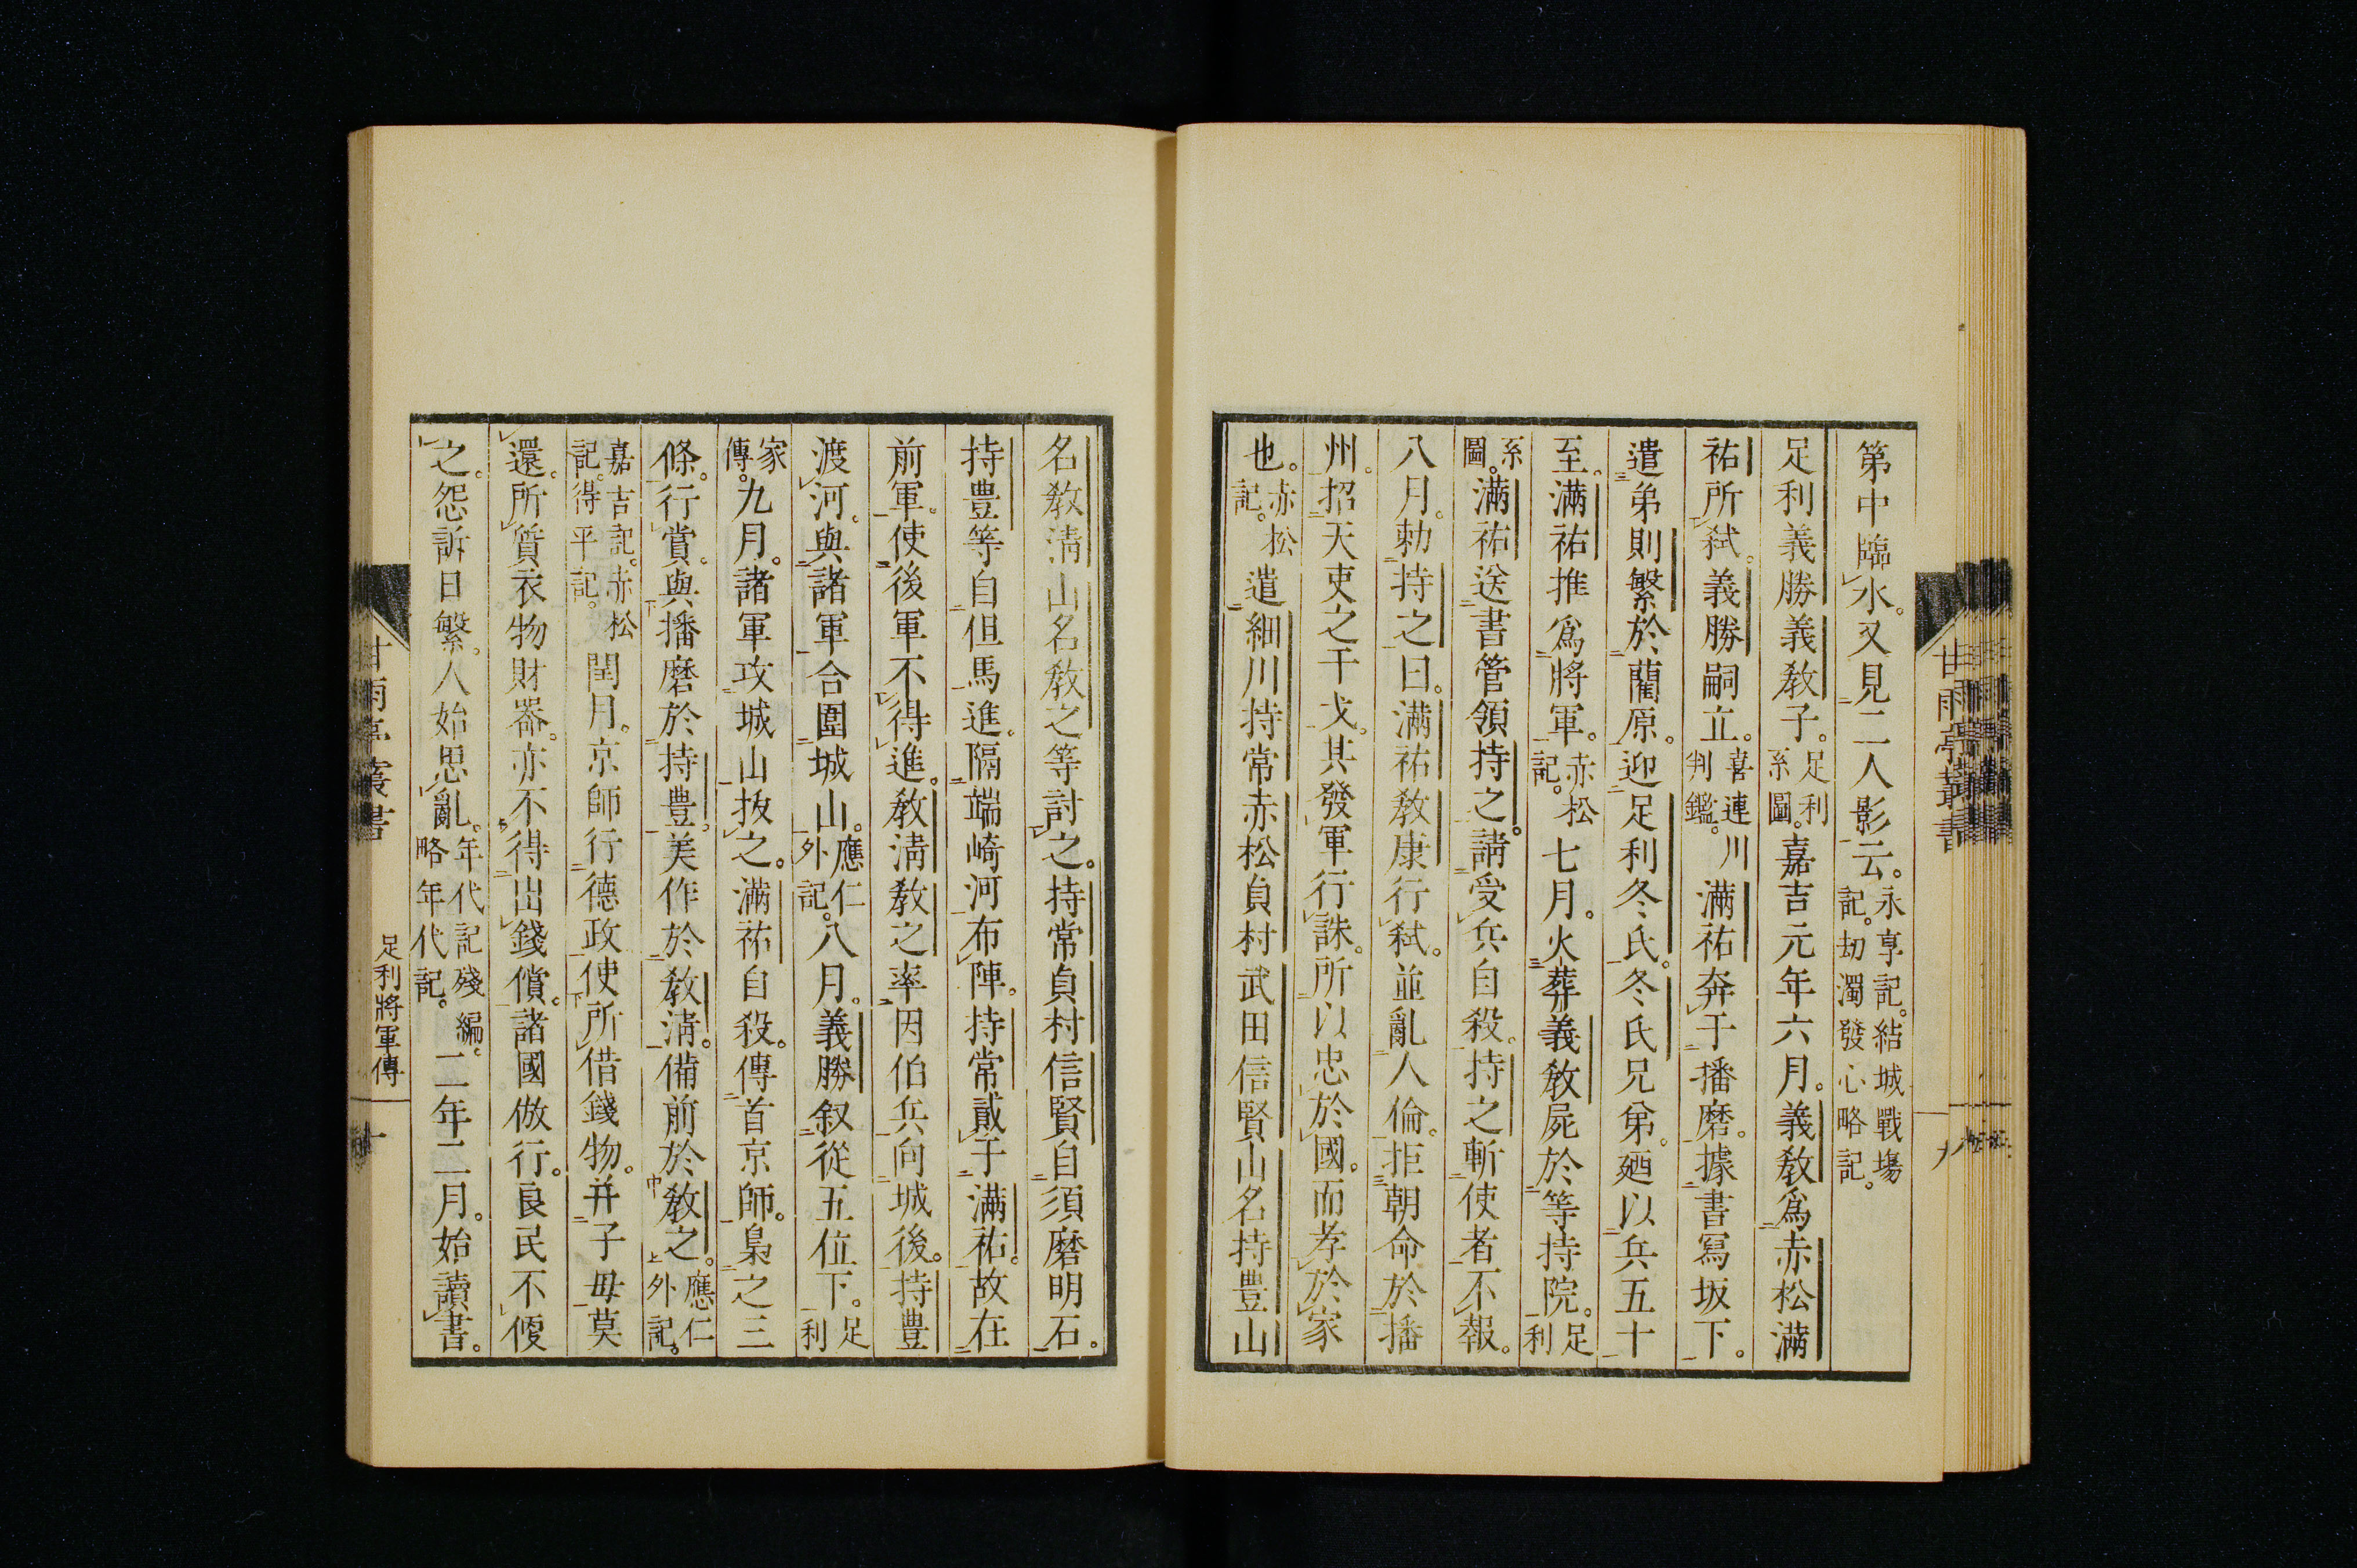 第中臨水。又見二人影云。永享記。結城戰塲記。刧濁發心略記。
足利義勝義敎子。足利系圖。嘉吉元年六月。義敎爲赤松滿
祐所弑。義勝嗣立。喜連川判鑑。滿祐奔于播磨。據書寫坂下。
遣弟則繁於藺原。迎足利冬氏。冬氏兄弟。廼以兵五十
至。滿祐推爲將軍。赤松記。七月。火葬義敎屍於等持院。足利
系圖。滿祐送書管領持之。請受兵自殺。持之斬使者不報。
八月。勅持之曰。滿祐敎康行弑。並亂人倫。拒朝命於播
州。招天吏之干戈。其發軍行誅。所以忠於國。而孝於家
也。赤松記。遣細川持常赤松貞村武田信賢山名持豊山
名敎淸山名敎之等討之。持常貞村信賢自須磨明石。
持豊等自但馬進。隔端崎河布陣。持常貳于滿祐。故在
前軍。使後軍不得進。敎淸敎之率因伯兵向城後。持豊
渡河。與諸軍合圍城山。應仁外記。八月。義勝叙從五位下。足利
家傳。九月。諸軍攻城山拔之。滿祐自殺。傳首京師。梟之三
條。行賞。與播磨於持豊。美作於敎淸。備前於敎之。應仁外記。
嘉吉記。赤松記。得平記。閏月。京師行德政。使所借錢物。并子母莫
還。所質衣物財器。亦不得出錢償。諸國倣行。良民不便
之。怨訴日繁。人始思亂。年代記殘編。略年代記。二年二月。始讀書。
甘雨亭叢書
九
甘雨亭叢書
足利將軍傳
十